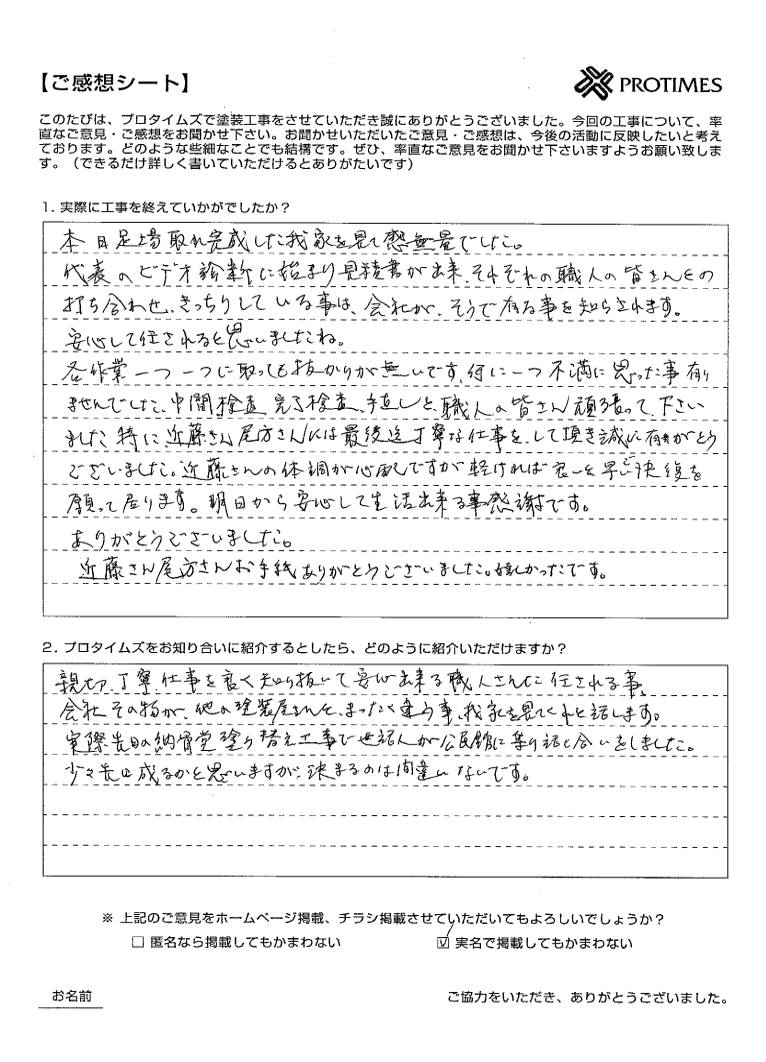 【ご感想シート】
PROTIMES
このたびは、プロタイムズで塗装工事をさせていただき誠にありがとうございました。今回の工事について、率
直なご意見・ご感想をお聞かせ下さい。お聞かせいただいたご意見・ご感想は、今後の活動に反映したいと考え
ております。どのような些細なことでも結構です。ぜひ、率直なご意見をお聞かせ下さいますようお願い致しま
す。（できるだけ詳しく書いていただけるとありがたいです）
1. 実際に工事を終えていかがでしたか？
本日足場取れ完成した我家を見て感無量でした。
代表のビデオ診断に始まり見積書が出来、それぞれの職人の皆さんとの
打ち合わせ、きっちりしている事は、会社が、そうで有る事を知らされます。
安心して任されると思いましたね。
各作業一つ一つに取っても抜かりが無いです、何に一つ不満に思った事有り
ませんでした、中間検査、完了検査、手直しと、職人の皆さん頑張って下さい
ました 特に近藤さん尾方さんには最後迄丁寧な仕事を、して頂き誠に有難がとう
ございました。近藤さんの体調が心配ですが軽ければ 早い快復を
願って居ります。明日から安心して生活出来る事感謝です。
ありがとうございました。
近藤さん尾方さんお手紙ありがとうございました。嬉しかったです。
2. プロタイムズをお知り合いに紹介するとしたら、どのように紹介いただけますか？
親切、丁寧、仕事を良く知り抜いて安心出来る職人さんに任される事、
会社その物が、他の塗装屋さんと、まったく違う事、我家を見てくれと話します。
実際先日の納骨堂塗り替え工事で世話人が公民館に寄り話し合いをしました。
少々先に成るかと思いますが、決まるのは間違いないです。
※ 上記のご意見をホームページ掲載、チラシ掲載させていただいてもよろしいでしょうか？
□ 匿名なら掲載してもかまわない ☑ 実名で掲載してもかまわない
お名前 ご協力をいただき、ありがとうございました。